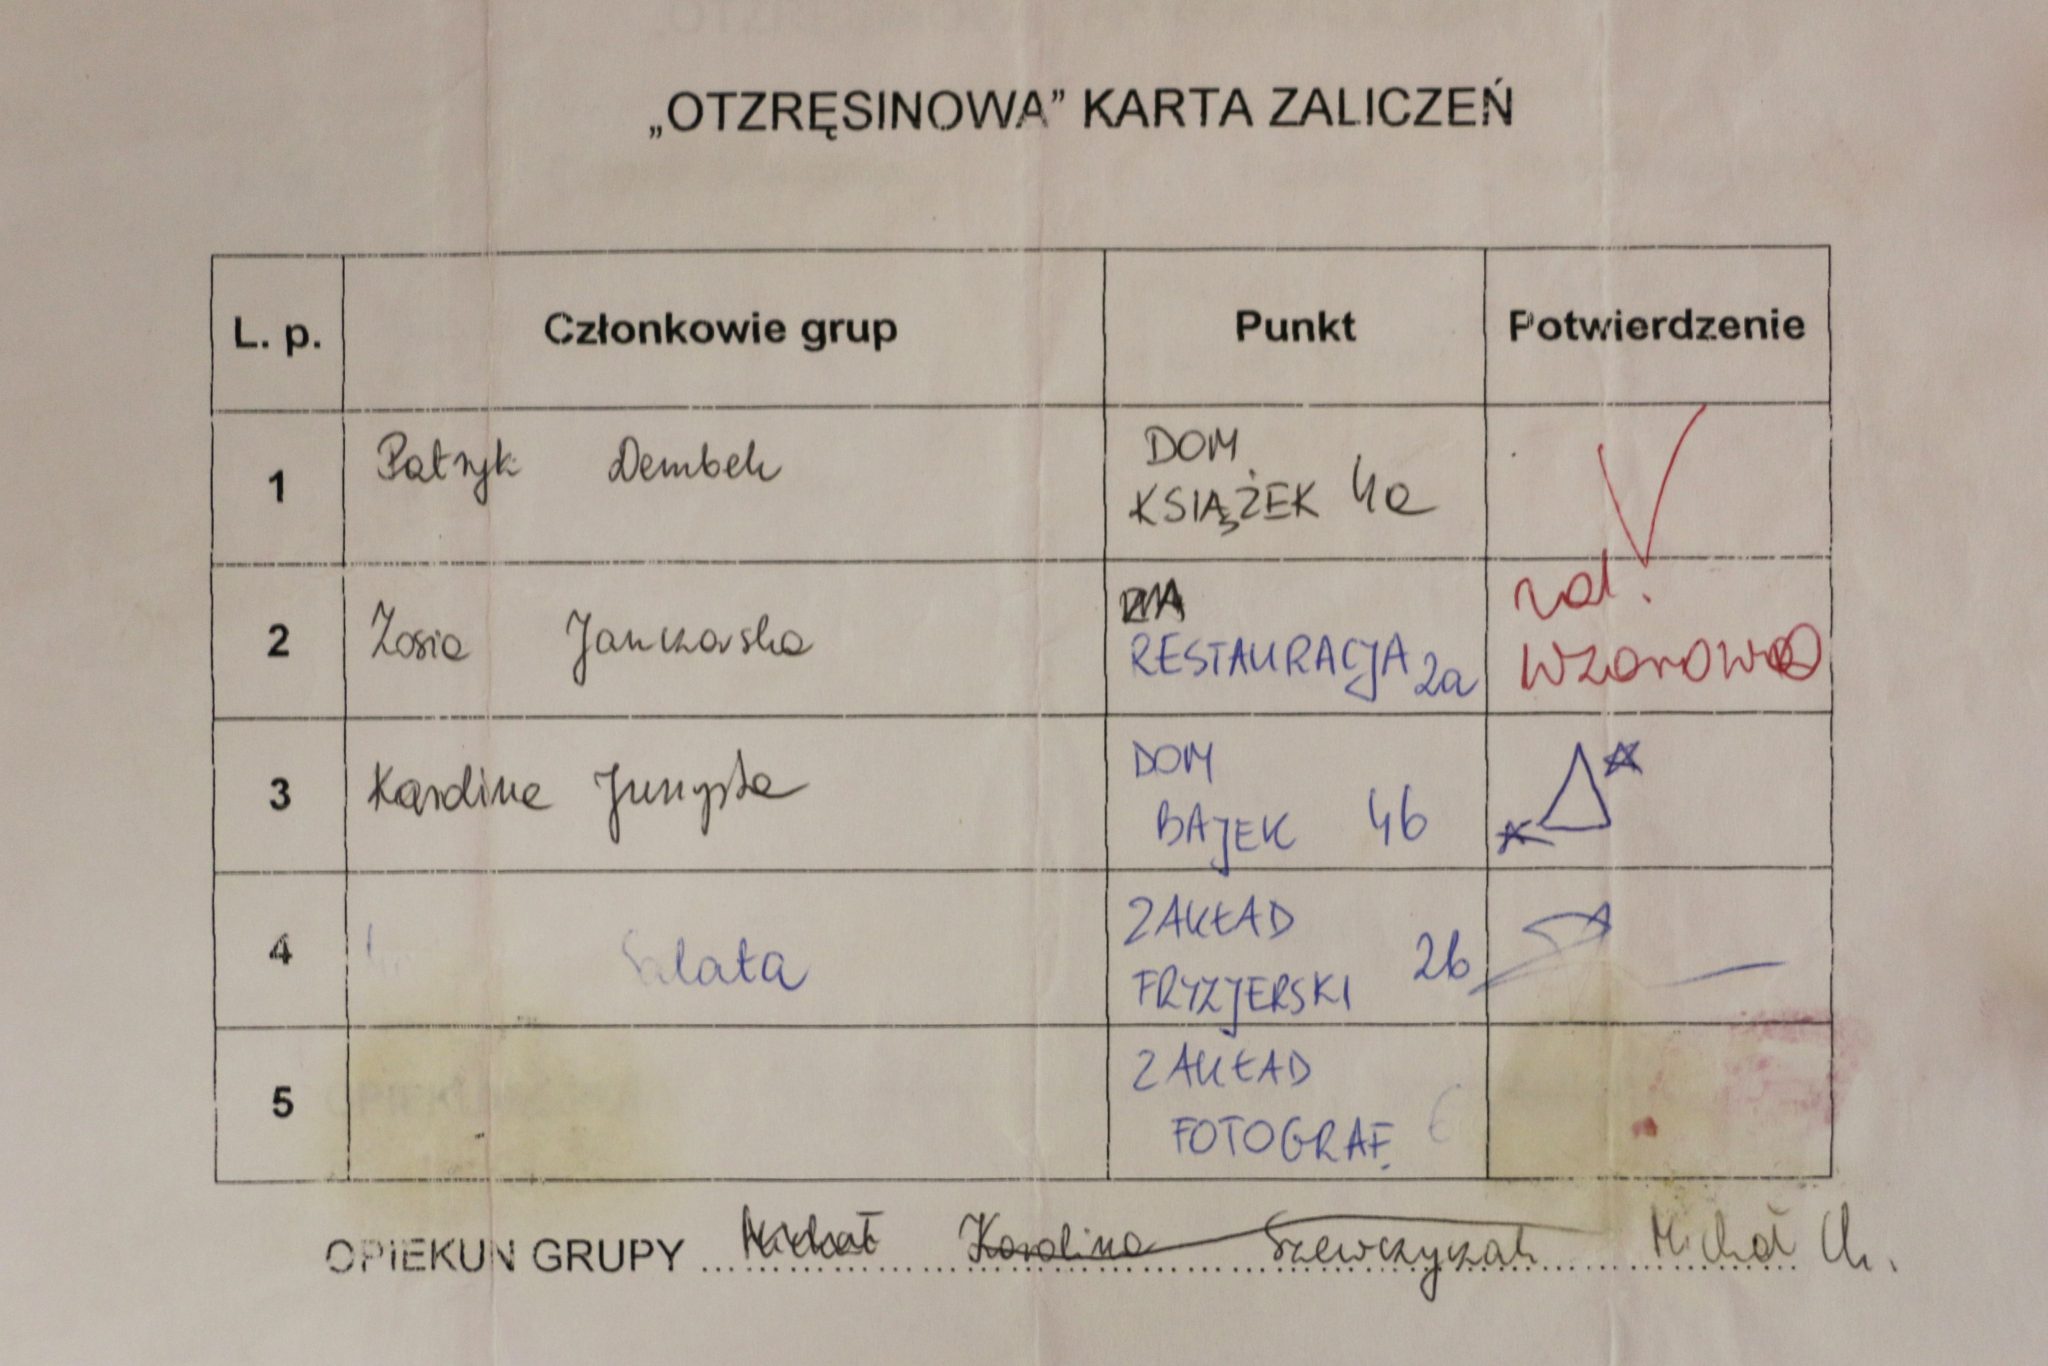 „OTZRĘSINOWA” KARTA ZALICZEŃ
L. p. Członkowie grup Punkt Potwierdzenie
1 Patryk Dembek DOM
KSIĄŻEK 4a
zal.
2 Zosia Janczarska RESTAURACJA 2a wzorowo
3 Karolina DOM
BAJEK 4b
4 ZAKŁAD
FRYZJERSKI 2b
5 ZAKŁAD
FOTOGRAF. 6
OPIEKUN GRUPY Michał Karolina Szewczyzak Michał Ch.